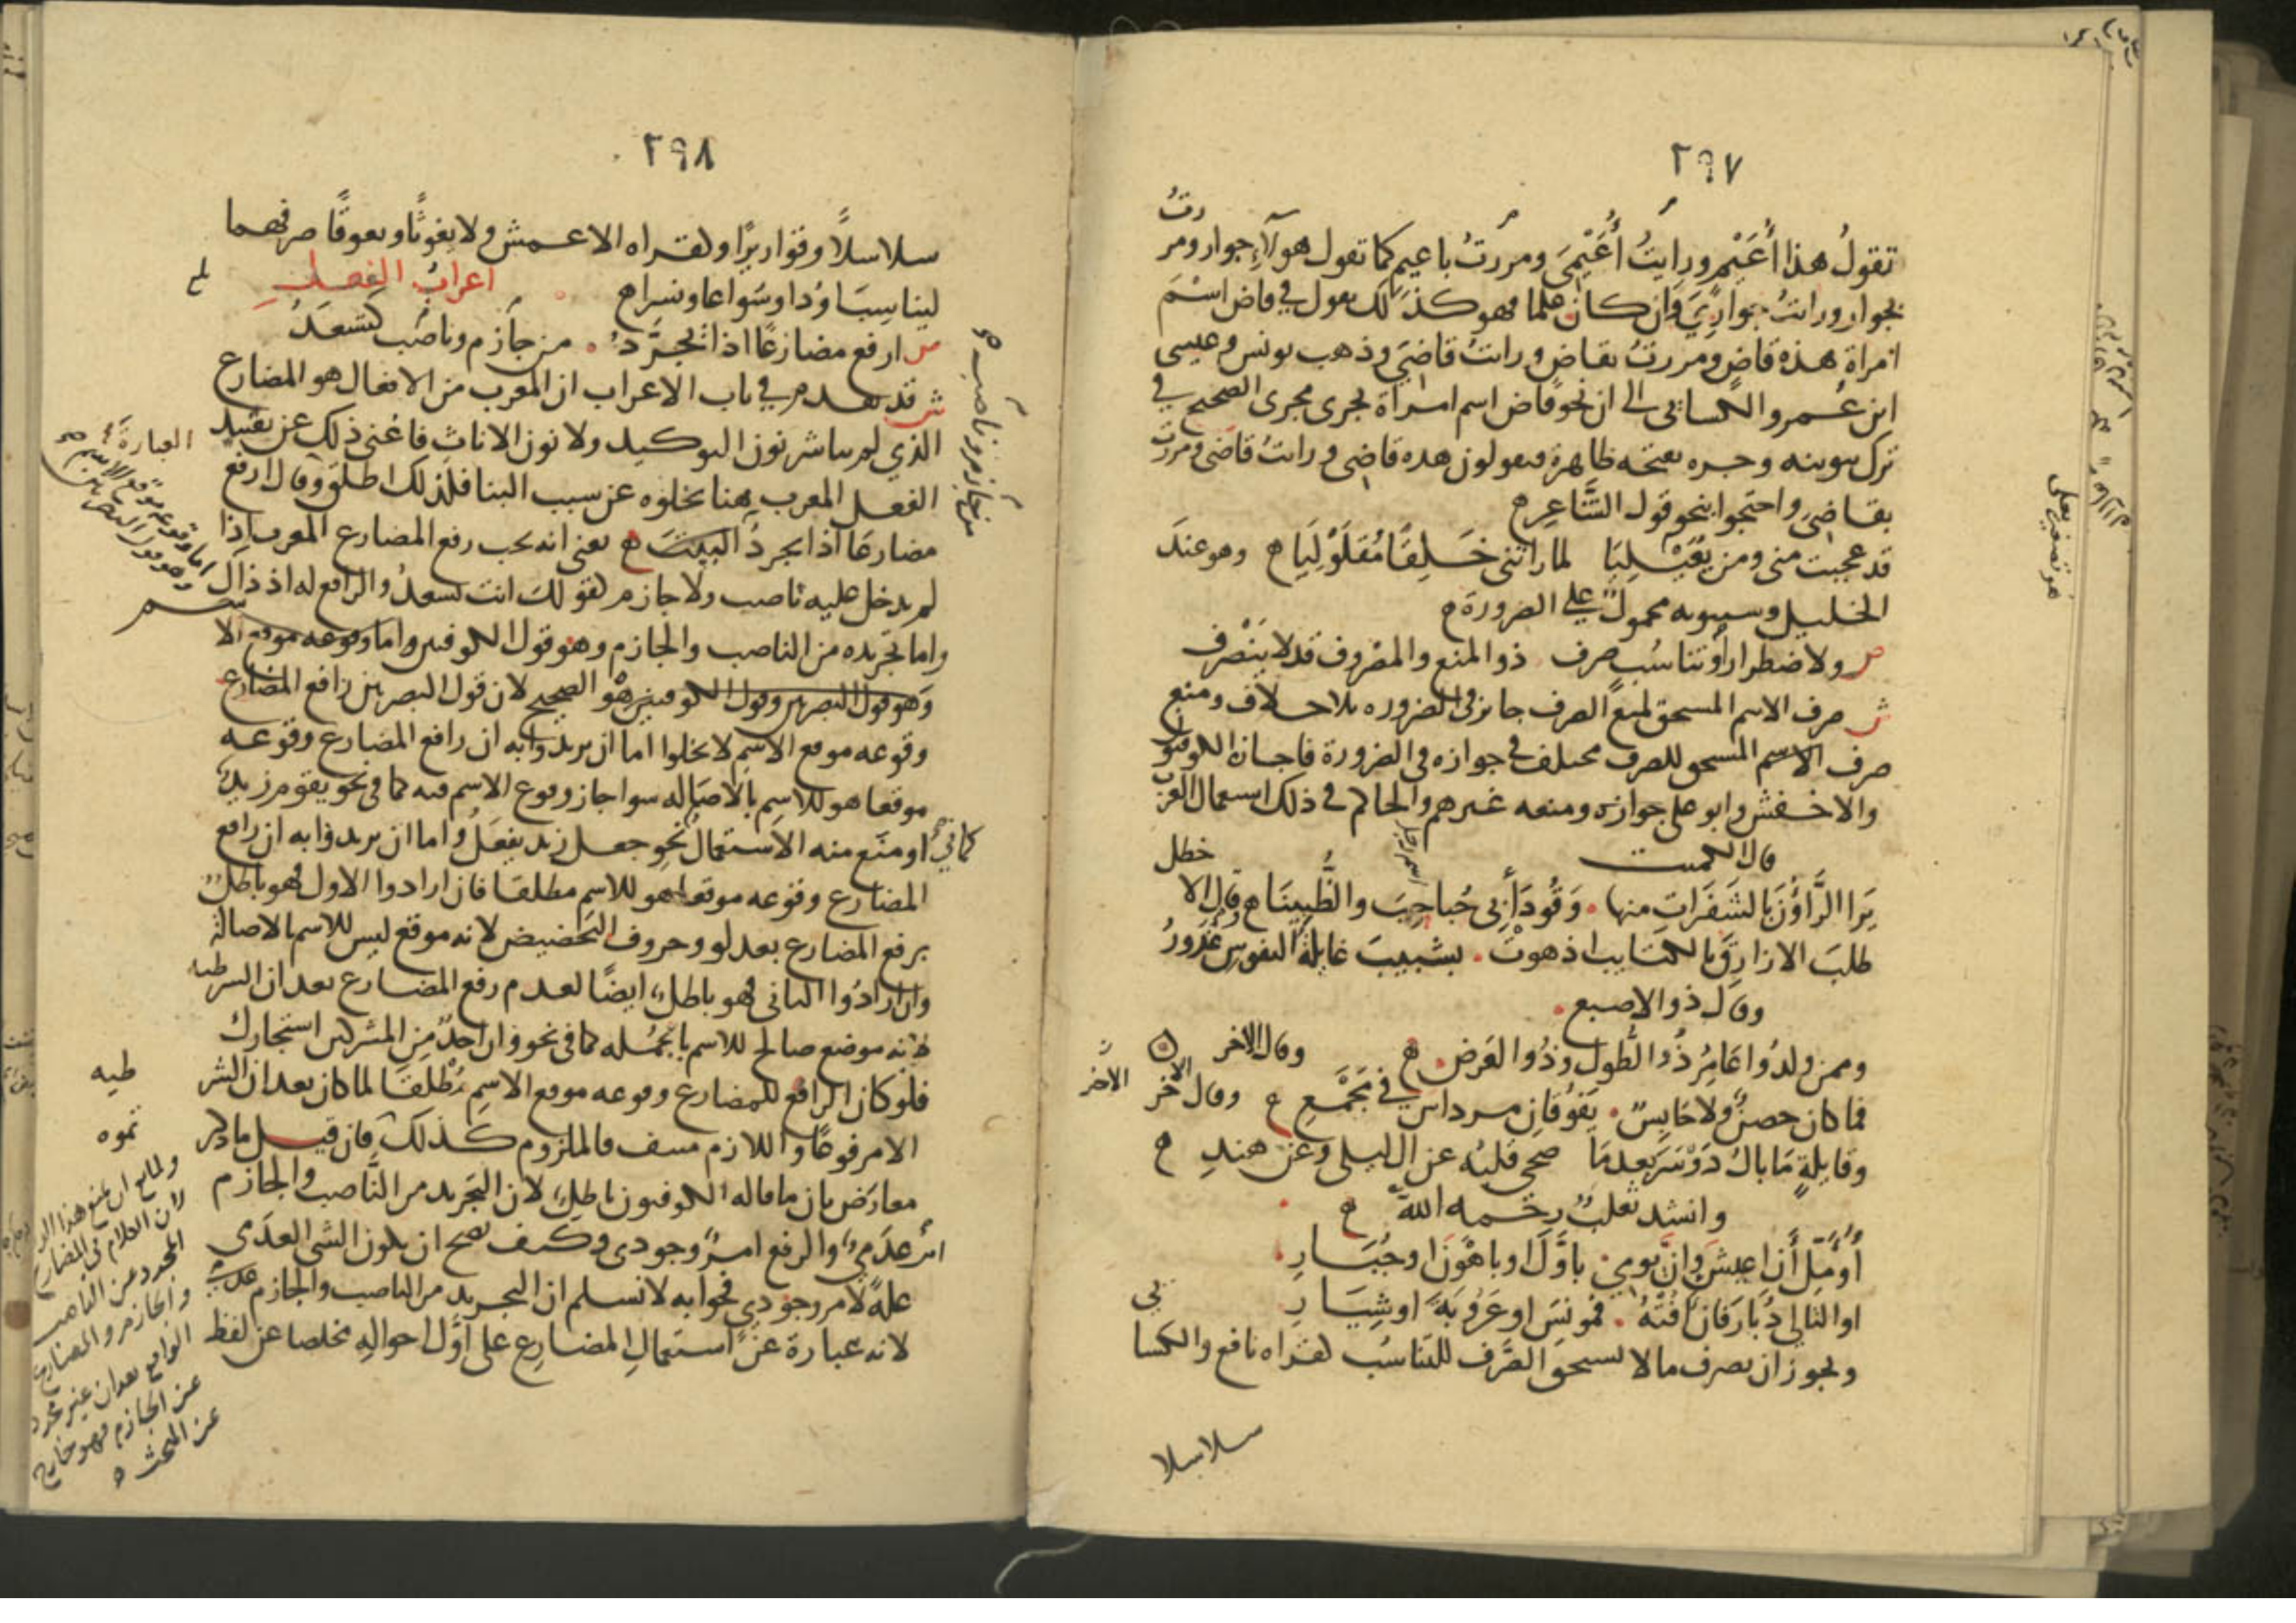 ٢٩٧
تقولُ هذا أُعَيْمٍ ورايتُ أُعَيْمِىَ ومررتُ باعيمٍ كما تقول هولآءِ جوار ومررتُ
بجوار ورايتُ جوارِيَ وان كان علما فهو كذلك تقول في قاض اسم
امراة هذه قاضٍ ومررتُ بقاضٍ ورايتُ قاضىَ وذهب يونس وعيسى
ابن عُمر والكسائى الى ان نحو قاض اسم امراة يجرى مجرى الصحيح في
ترك تنوينه وجره بفتحه ظاهرة فيقولون هذه قاضى ورايتُ قاضىَ ومررت
بقاضىَ واحتجوا بنحو قول الشَّاعِرِ ه
قد عجبت منى ومن يُعَيْلِيَا لما راتنى خَلِقًا مُقلَوْلِيَا ه وهو عندَ
الخليل وسيبويه محمولٌ على الضرورة ه
ص ولاضطرارٍ أو تناسُبٍ صرف ذو المنع والمصروف قد لا ينْصَرف
ش صرف الاسم المستحق لمنع الصرف جايز في الضروره بلا خلاف ومنع
صرف الاسم المستحق للصرف مختلف في جوازه في الضرورة فاجازه الكوفيون
والاخفش وابو على جوازه ومنعه غيرهم والحاكم في ذلك استعمال العرب
قال الكميت
يَرَا الرَّاؤُنَ بالشَفَرَاتِ منها . وَقُودَ أبى حُباحِبَ والظُّبِينَا ه وقال الاخطل
طلبَ الازارِقَ بالكتايب اذ هوتْ . بشبيبَ غايلةُ النفوسِ غَدُورُ
وقال ذو الاصبع .
وممن ولدُوا عَامِرُ ذُو الطُول وذُوا العَرض . ه وقال الاخر
فما كان حصنٌ ولا حَابِسٌ . يَفوُقانِ مرداسَ في مَجْمَعِ ه وقال الاخر
وقايلةٍ مَا بالُ دَوْسَرَ بعدمَا صحى قلبُه عن ال ليلى وعن هندِ ه
وانشد ثعلبٌ رحمه الله ه
أُؤَمِّلُ أَن اعيشَ وانَّ يومى . باوَّلَ اوباهْوَنَ اوجُبَارِ .
او التالى دُبَارَ فان افُتْهُ . فمونسَ اوعَرُوبَةَ اوشِيَارِ
ويجوز ان يصرف مالا يستحق الصَّرف للتناسُب كقراه نافع والكسا
ئى
سلاسلا
هو تصغير يعلى
٢٩٨
سلاسلاً وقواريرًا وكقراه الاعمش ولا يغوثًا ويعوقًا صرفهما
ليناسِبَا وُدا وسُواعا ونسراه اعرابُ الفعل
ص ارفع مضارعًا اذا يُجَرَّدُ . من جَازم وناصب كتسعَدُ
ش قد تقدم في باب الاعراب ان المعرب من الافعال هو المضارع
الذي لم تباشر نون التوكيد ولا نون الاناث فاغنى ذلك عن تقييد
الفعل المعرب هنا بخلوه عن سبب البنا فلذلك اطلق وقال ارفع
مضارعًا اذا يجردُ البيتَ ه يعنى انه يجب رفع المضارع المعرب اذا
لم يدخل عليه ناصب ولا جازم كقولك انت تسعدُ والرافع له اذ ذاك
واما تجريده من الناصب والجازم وهو قول الكوفيين واما وقوعه موقع الا
وهو قول البصريين وقول الكوفيين هو الصحيح لان قول البصريين رافع المضارع
وقوعه موقع الاسم لا يخلوا اما ان يريدوا به ان رافع المضارع وقوعه
موقعا هو للاسم بالاصاله سوا جاز وقوع الاسم فيه كما في نحو يقوم زيدٌ
او منَع منه الاستعمالُ نحو جعل زيد يفعَلُ واما ان يريدوا به ان رافع
المضارع وقوعه موقعا هو للاسم مطلقا فان ارادوا الاول فهو باطلٌ
برفع المضارع بعد لو وحروف التحضيض لانه موقع ليس للاسم الاصالة
وان ارادُوا الثانى فهو باطلٌ ايضًا لعدم رفع المضارع بعد ان الشرطيه
لانه موضع صالح للاسم بالجمله كما في نحو وان احدٌ من المشركين استجارك
فلو كان الرافع للمضارع وقوعه موقع الاسم مُطْلقًا لما كان بعد ان الشر
طيه
الا مرفوعًا واللازم منتف فالملزوم كذلك فان قيل ما ذكر
تموه
معارَض بان ما قاله الكوفيون باطلٌ لان التجريد من النَّاصب والجازم
امرٌ عدَميٌ والرفع امرٌ وجودى وكيف يصح ان يكون الشى العدَمى
علهً لامر وجودىٍ فجوابه لا نسلم ان التجريد من الناصب والجازم عدمى
لانه عبارة عن استعمالِ المضارِع على اوَّل احوالِهِ مخلصا عن لفظ
من جازم وناصب ه
كما في
العبارة
اما وقوعه موقع الاسم
وهو قول البصريين
لان الكلام في المضارع
المجرد عن الناصب
والجازم والمضارع
الواقع بعد ان غير مجرد
عن الجازم فهو خارج
عن المبحث ه